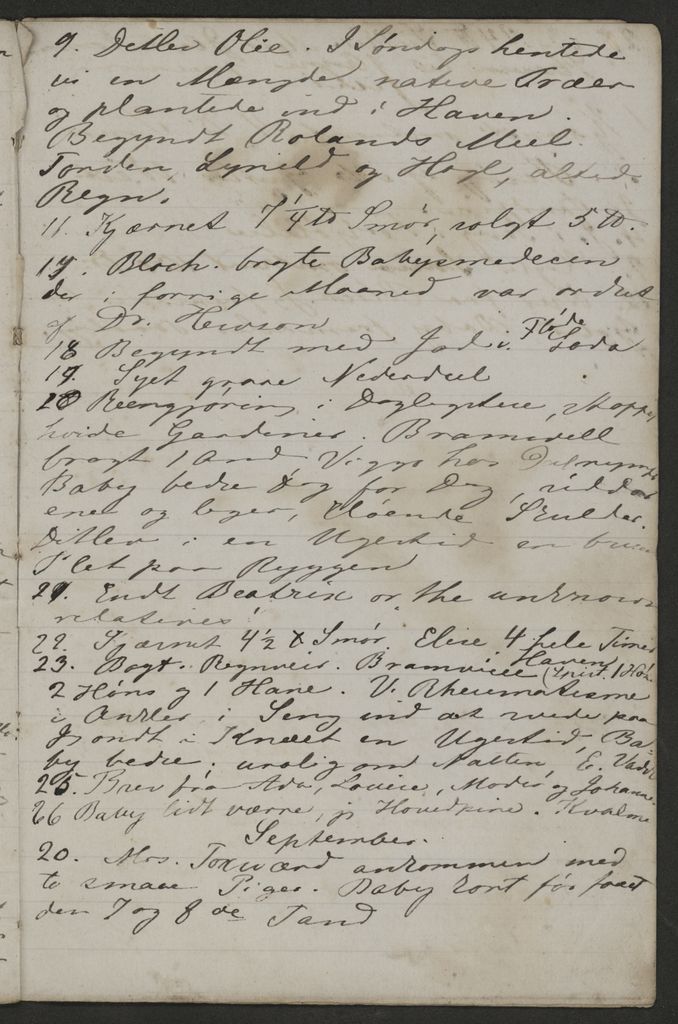 9. Detlev Olie. I Søndags hentede
vi en Mængde native Træer
og plantede ind i Haven.
Begyndt Rolands Meel.
Torden, Lynild og Hagl, altid
Regn.
11. Kjærnet 7 1/4 ℔ Smør, solgt 5 ℔.
Bloch bragte Babysmedecin
der i forrige Maaned var ordret
af Dr. Hewson
18 Begyndt med Jod i Fløde
Soda
19. Syet graae Nederdeel
20 Reengjøring i Dagligstue,
hvide Gardiner. Bramwell
bragt 1 And, Viggo hos
Baby bedre Dag for Dag,
ene og leger, Skulder.
Ditlev i en Ugestid en
Plet paa Ryggen
21. Endt Beatrix or "the unknown
relatives"
22. Kjærnet 4 1/2 ℔ Smør, Elise 4 hele Timer
Haven
23. Bagt. Regnveir. Bramwell 1 Høn
2 Høns og 1 Hane. V. Rheumatisme
i Ankler, i Seng ind at svede paa
ondt i Knæet en Ugestid, Ba=
by bedre, urolig om Natten, E.
25. Brev fra Ada, Louise, Moder og Johanne.
26 Baby lidt værre, jg Hovedpine. Kvalme
September.
20. Mrs. Toxværd ankommen med
to smaae Piger. Baby kort før faaet
den 7 og 8de Tand